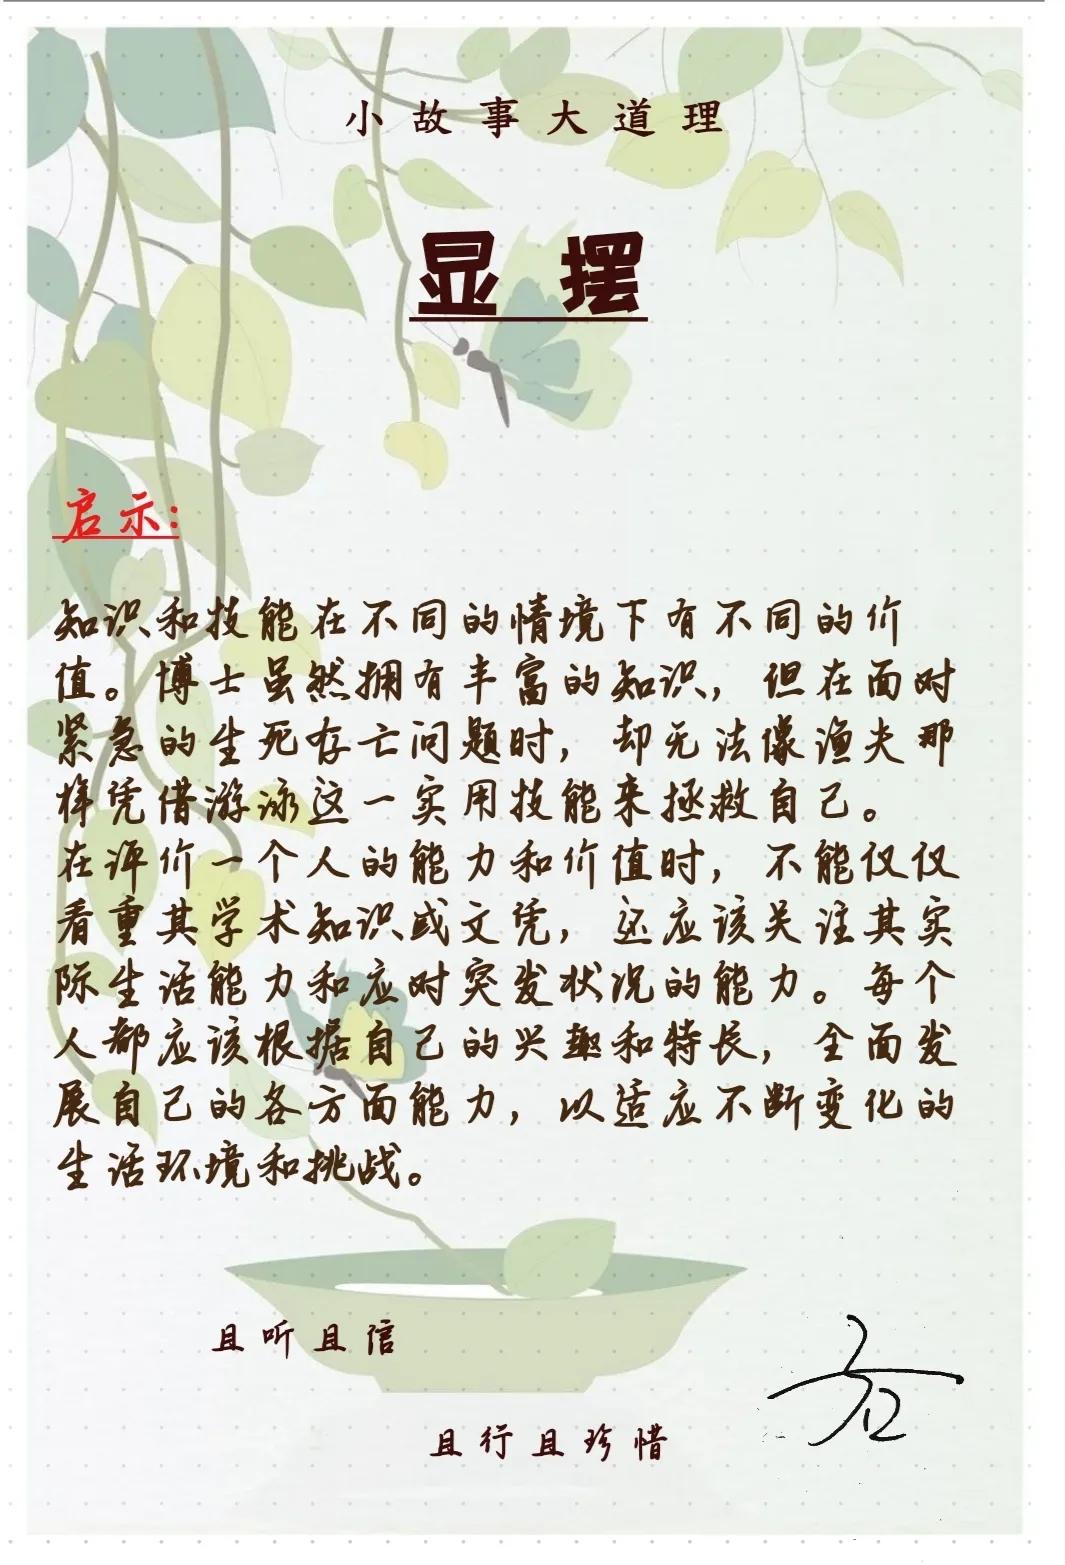 小故事大道理
显摆
启示:
知识和技能在不同的情境下有不同的价
值。博士虽然拥有丰富的知识，但在面对
紧急的生死存亡问题时，却无法像渔夫那
样凭借游泳这一实用技能来拯救自己。
在评价一个人的能力和价值时，不能仅仅
看重其学术知识或文凭，还应该关注其实
际生活能力和应对突发状况的能力。每个
人都应该根据自己的兴趣和特长，全面发
展自己的各方面能力，以适应不断变化的
生活环境和挑战。
且听且信
且行且珍惜